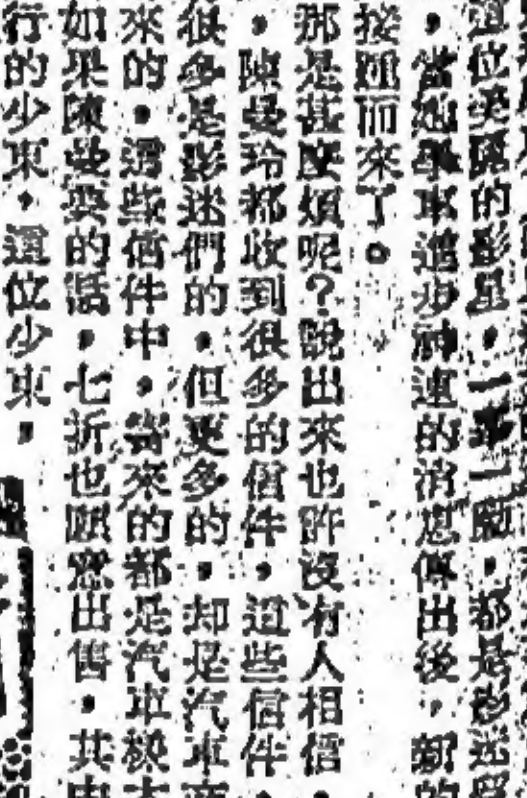 這位美麗的影星,一舉一動,都是影迷
,當她學車進步神速的消息傳出後,新的
接踵而來了。
那是甚麼煩呢?說出來也許沒有人相信,
,陳曼玲都收到很多的信件,這些信件
很多是影迷們的,但更多的,却是汽車商
來的,這些信件中,寄來的都是汽車樣本
如果陳曼要的話,七折也願意出售,其中
行的少東,這位少東,